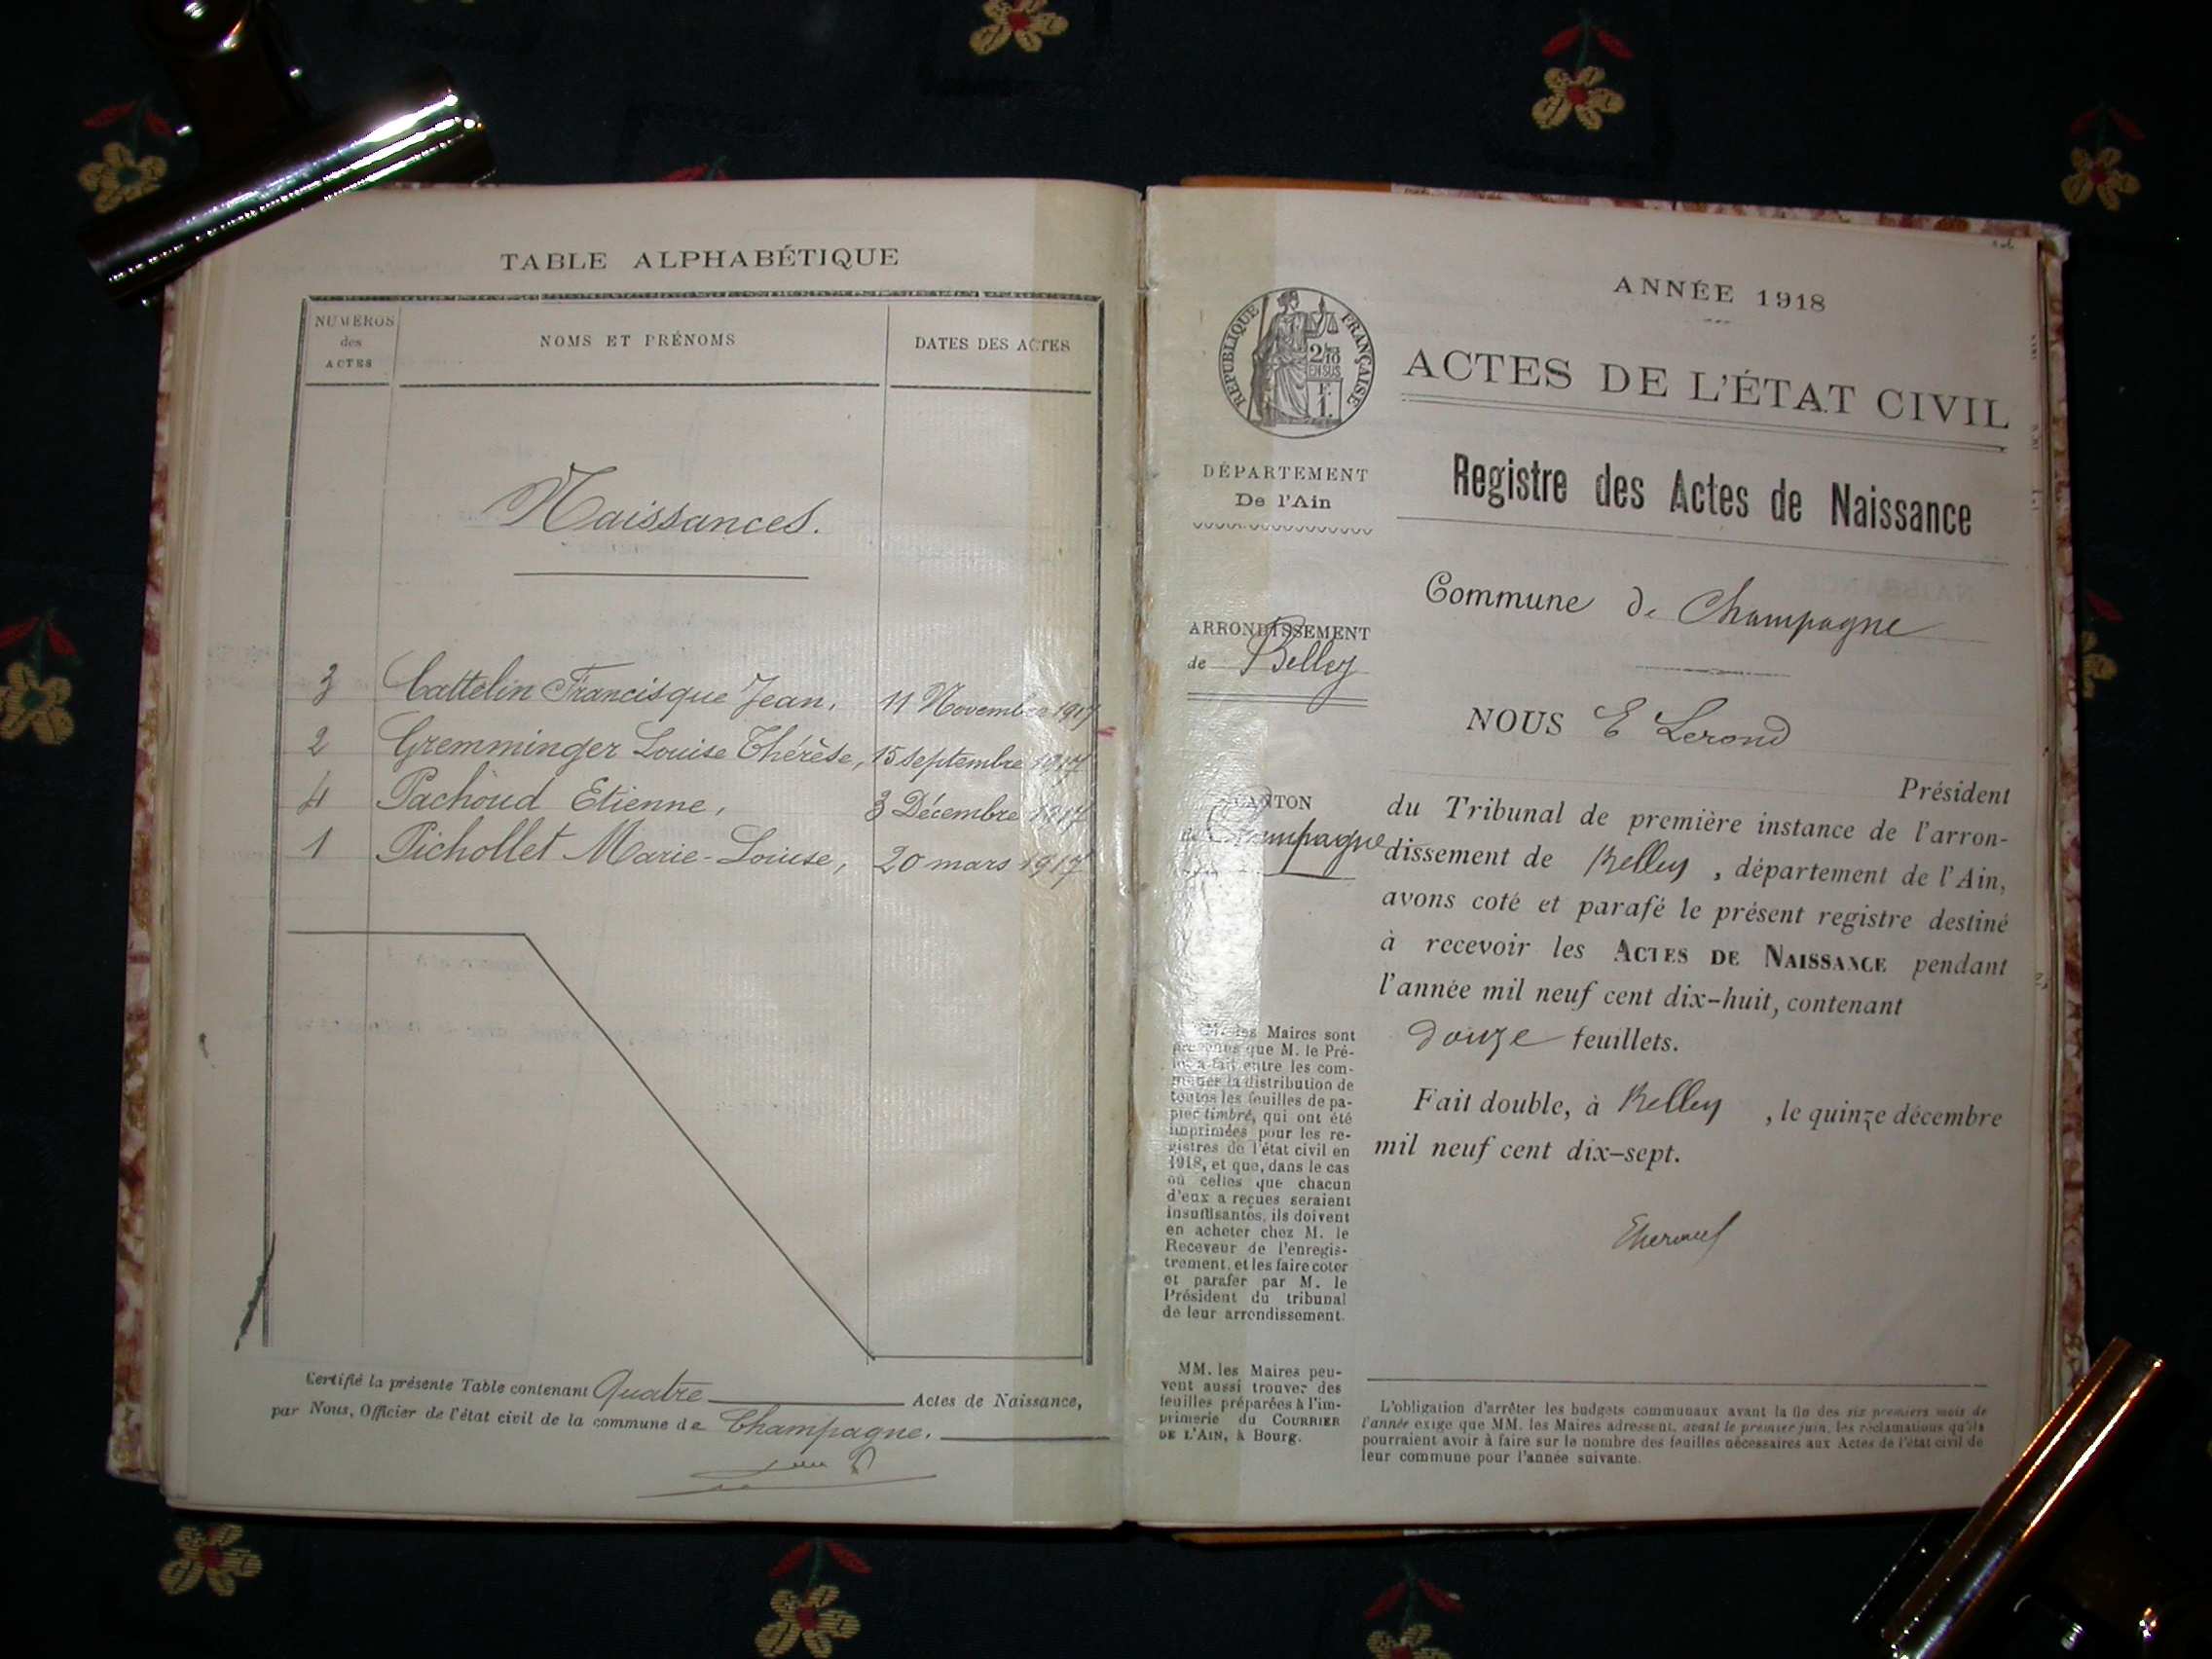 TABLE ALPHABÉTIQUE
NUMÉROS
des
ACTES
NOMS ET PRÉNOMS
DATES DES ACTES
Naissances.
3 Cattelin Francisque Jean, 11 Novembre 1917
2 Gremminger Louise Thérèse, 15 septembre 1917
4 Pachoud Etienne, 3 Décembre 1917
1 Pichollet Marie-Louise, 20 mars 1917
Certifié la présente Table contenant Quatre Actes de Naissance,
par Nous, Officier de l'état civil de la commune de Champagne.
ANNÉE 1918
RÉPUBLIQUE FRANÇAISE
2/10
EN SUS
F.
1.
ACTES DE L'ÉTAT CIVIL
DÉPARTEMENT
De l'Ain
Registre des Actes de Naissance
Commune de Champagne
ARRONDISSEMENT
de Belley
NOUS E Lerond
Président
CANTON
de Champagne
du Tribunal de première instance de l'arron-
dissement de Belley, département de l'Ain,
avons coté et parafé le présent registre destiné
à recevoir les ACTES DE NAISSANCE pendant
l'année mil neuf cent dix-huit, contenant
douze feuillets.
Fait double, à Belley, le quinze décembre
mil neuf cent dix-sept.
MM. les Maires sont
prévenus que M. le Pré-
fet a fait entre les com-
munes la distribution de
toutes les feuilles de pa-
pier timbré, qui ont été
imprimées pour les re-
gistres de l'état civil en
1918, et que, dans le cas
où celles que chacun
d'eux a reçues seraient
insuffisantes, ils doivent
en acheter chez M. le
Receveur de l'enregis-
trement, et les faire coter
et parafer par M. le
Président du tribunal
de leur arrondissement.
MM. les Maires peu-
vent aussi trouver des
feuilles préparées à l'im-
primerie du COURRIER
DE L'AIN, à Bourg.
L'obligation d'arrêter les budgets communaux avant la fin des six premiers mois de
l'année exige que MM. les Maires adressent, avant le premier juin, les réclamations qu'ils
pourraient avoir à faire sur le nombre des feuilles nécessaires aux Actes de l'état civil de
leur commune pour l'année suivante.